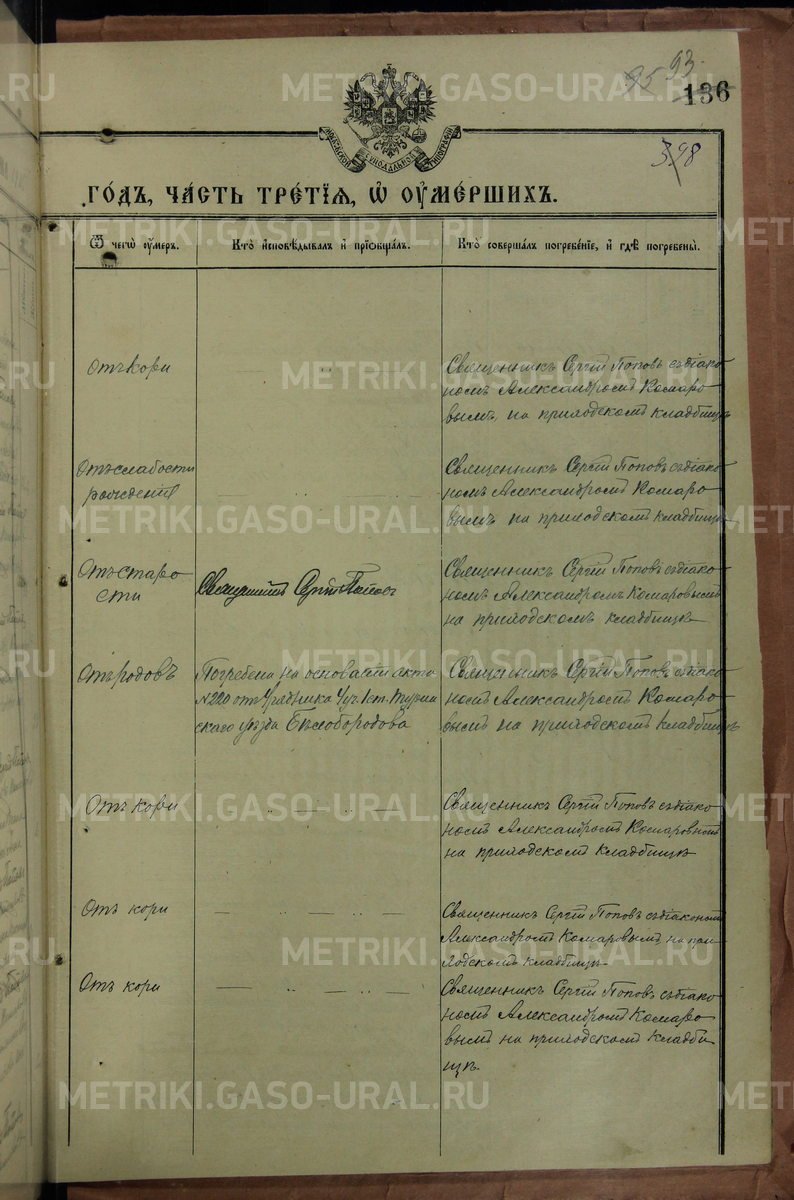 METRIKI.GASO-URAL.RU
95 93
136
398
МОСКОВСКОЙ СѴНОДАЛЬНОЙ ТИПОГРАФІИ
ГО́ДЪ, ЧА́СТЬ ТРЕ́ТІѦ, Ѡ҆ ОУ҆МЕ́РШИХЪ.
Ѿ чегѡ̀ оу҆́меръ.
Кто̀ и҆сповѣ́дывалъ и҆ прїѡбща́лъ.
Кто̀ соверша́лъ погребе́нїе, и҆ гдѣ̀ погребены̀.
Отъ кори
Священникъ Сергій Поповъ съ діако-
номъ Александромъ Комаро-
вымъ, на приходскомъ кладбищѣ
Отъ слабости
рожденія
Священникъ Сергій Поповъ съ діако-
номъ Александромъ Комаро-
вымъ на приходскомъ кладбищѣ
Отъ старо-
сти
Священникъ Сергій Поповъ
Священникъ Сергій Поповъ съ діако-
номъ Александромъ Комаровымъ
на приходскомъ кладбищѣ
Отъ родовъ
Погребена на основаніи акта
№220 отъ Урядника 4 уч. 1 ст. Турин-
скаго уѣзда Бѣлобородова
Священникъ Сергій Поповъ съ діако-
номъ Александромъ Комаро-
вымъ на приходскомъ кладбищѣ
Отъ кори
Священникъ Сергій Поповъ съ діако-
номъ Александромъ Комаровымъ
на приходскомъ кладбищѣ
Отъ кори
Священникъ Сергій Поповъ съ діакономъ
Александромъ Комаровымъ на при-
ходскомъ кладбищѣ
Отъ кори
Священникъ Сергій Поповъ съ діако-
номъ Александромъ Комаро-
вымъ на приходскомъ кладби-
щѣ.